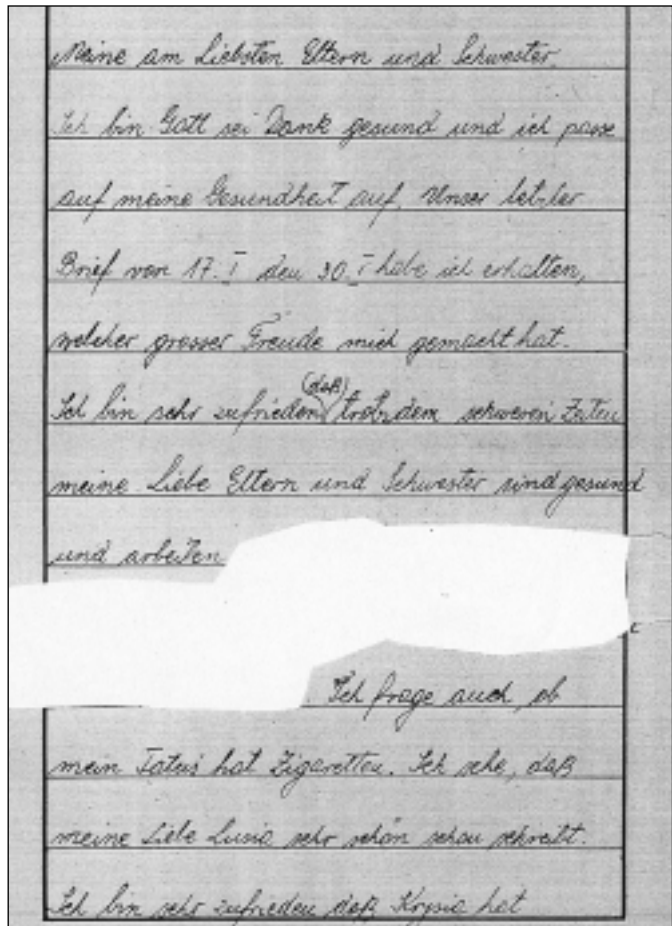 Meine am Liebsten Eltern und Schwester.
Ich bin Gott sei Dank gesund und ich passe
auf meine Gesundheit auf. Unser letzter
Brief von 17. I den 30. I habe ich erhalten,
welcher grosser Freude mich gemacht hat.
(daß)
Ich bin sehr zufrieden trotzdem schweren Zeiten
meine Liebe Eltern und Schwester sind gesund
und arbeiten
. Ich frage auch, ob
mein Tatuś hat Zigaretten. Ich sehe, daß
meine Liebe Lusia sehr schön schon schreibt.
Ich bin sehr zufrieden daß Krysia hat